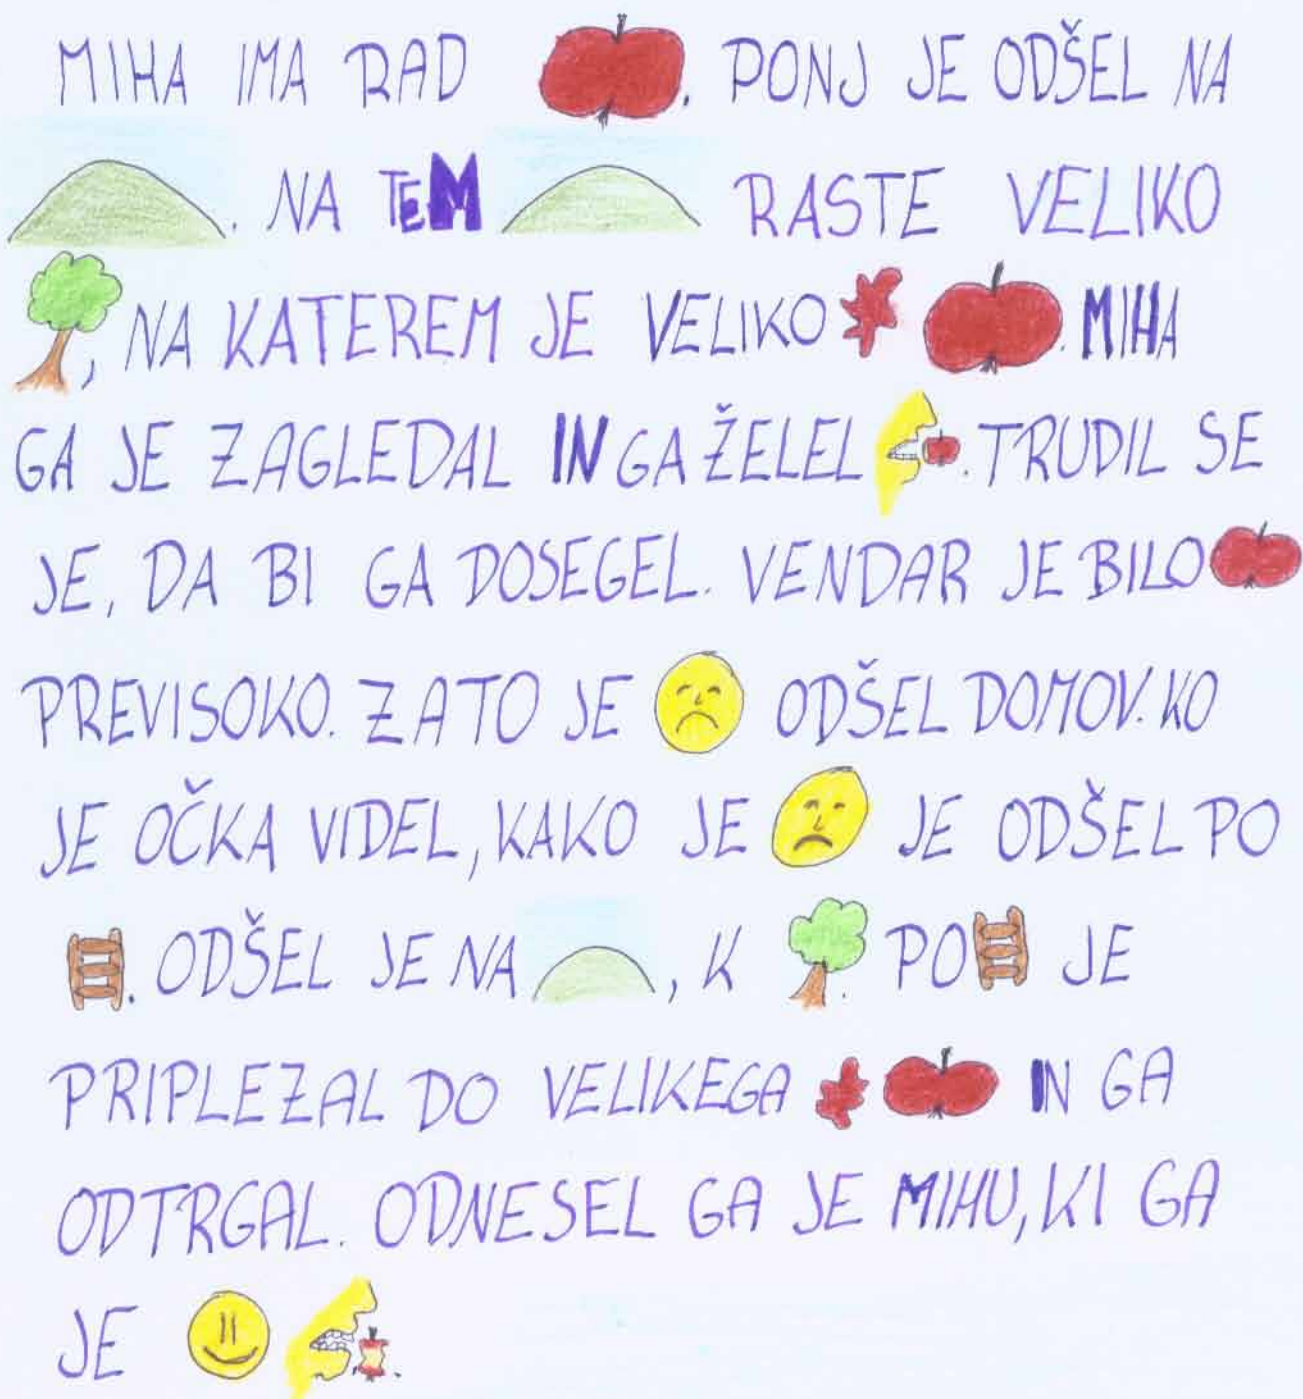 MIHA IMA RAD . PONJ JE ODŠEL NA
. NA TEM RASTE VELIKO
, NA KATEREM JE VELIKO . MIHA
GA JE ZAGLEDAL IN GA ŽELEL . TRUDIL SE
JE, DA BI GA DOSEGEL. VENDAR JE BILO
PREVISOKO. ZATO JE ODŠEL DOMOV. KO
JE OČKA VIDEL, KAKO JE JE ODŠEL PO
. ODŠEL JE NA , K . PO JE
PRIPLEZAL DO VELIKEGA IN GA
ODTRGAL. ODNESEL GA JE MIHU, KI GA
JE .